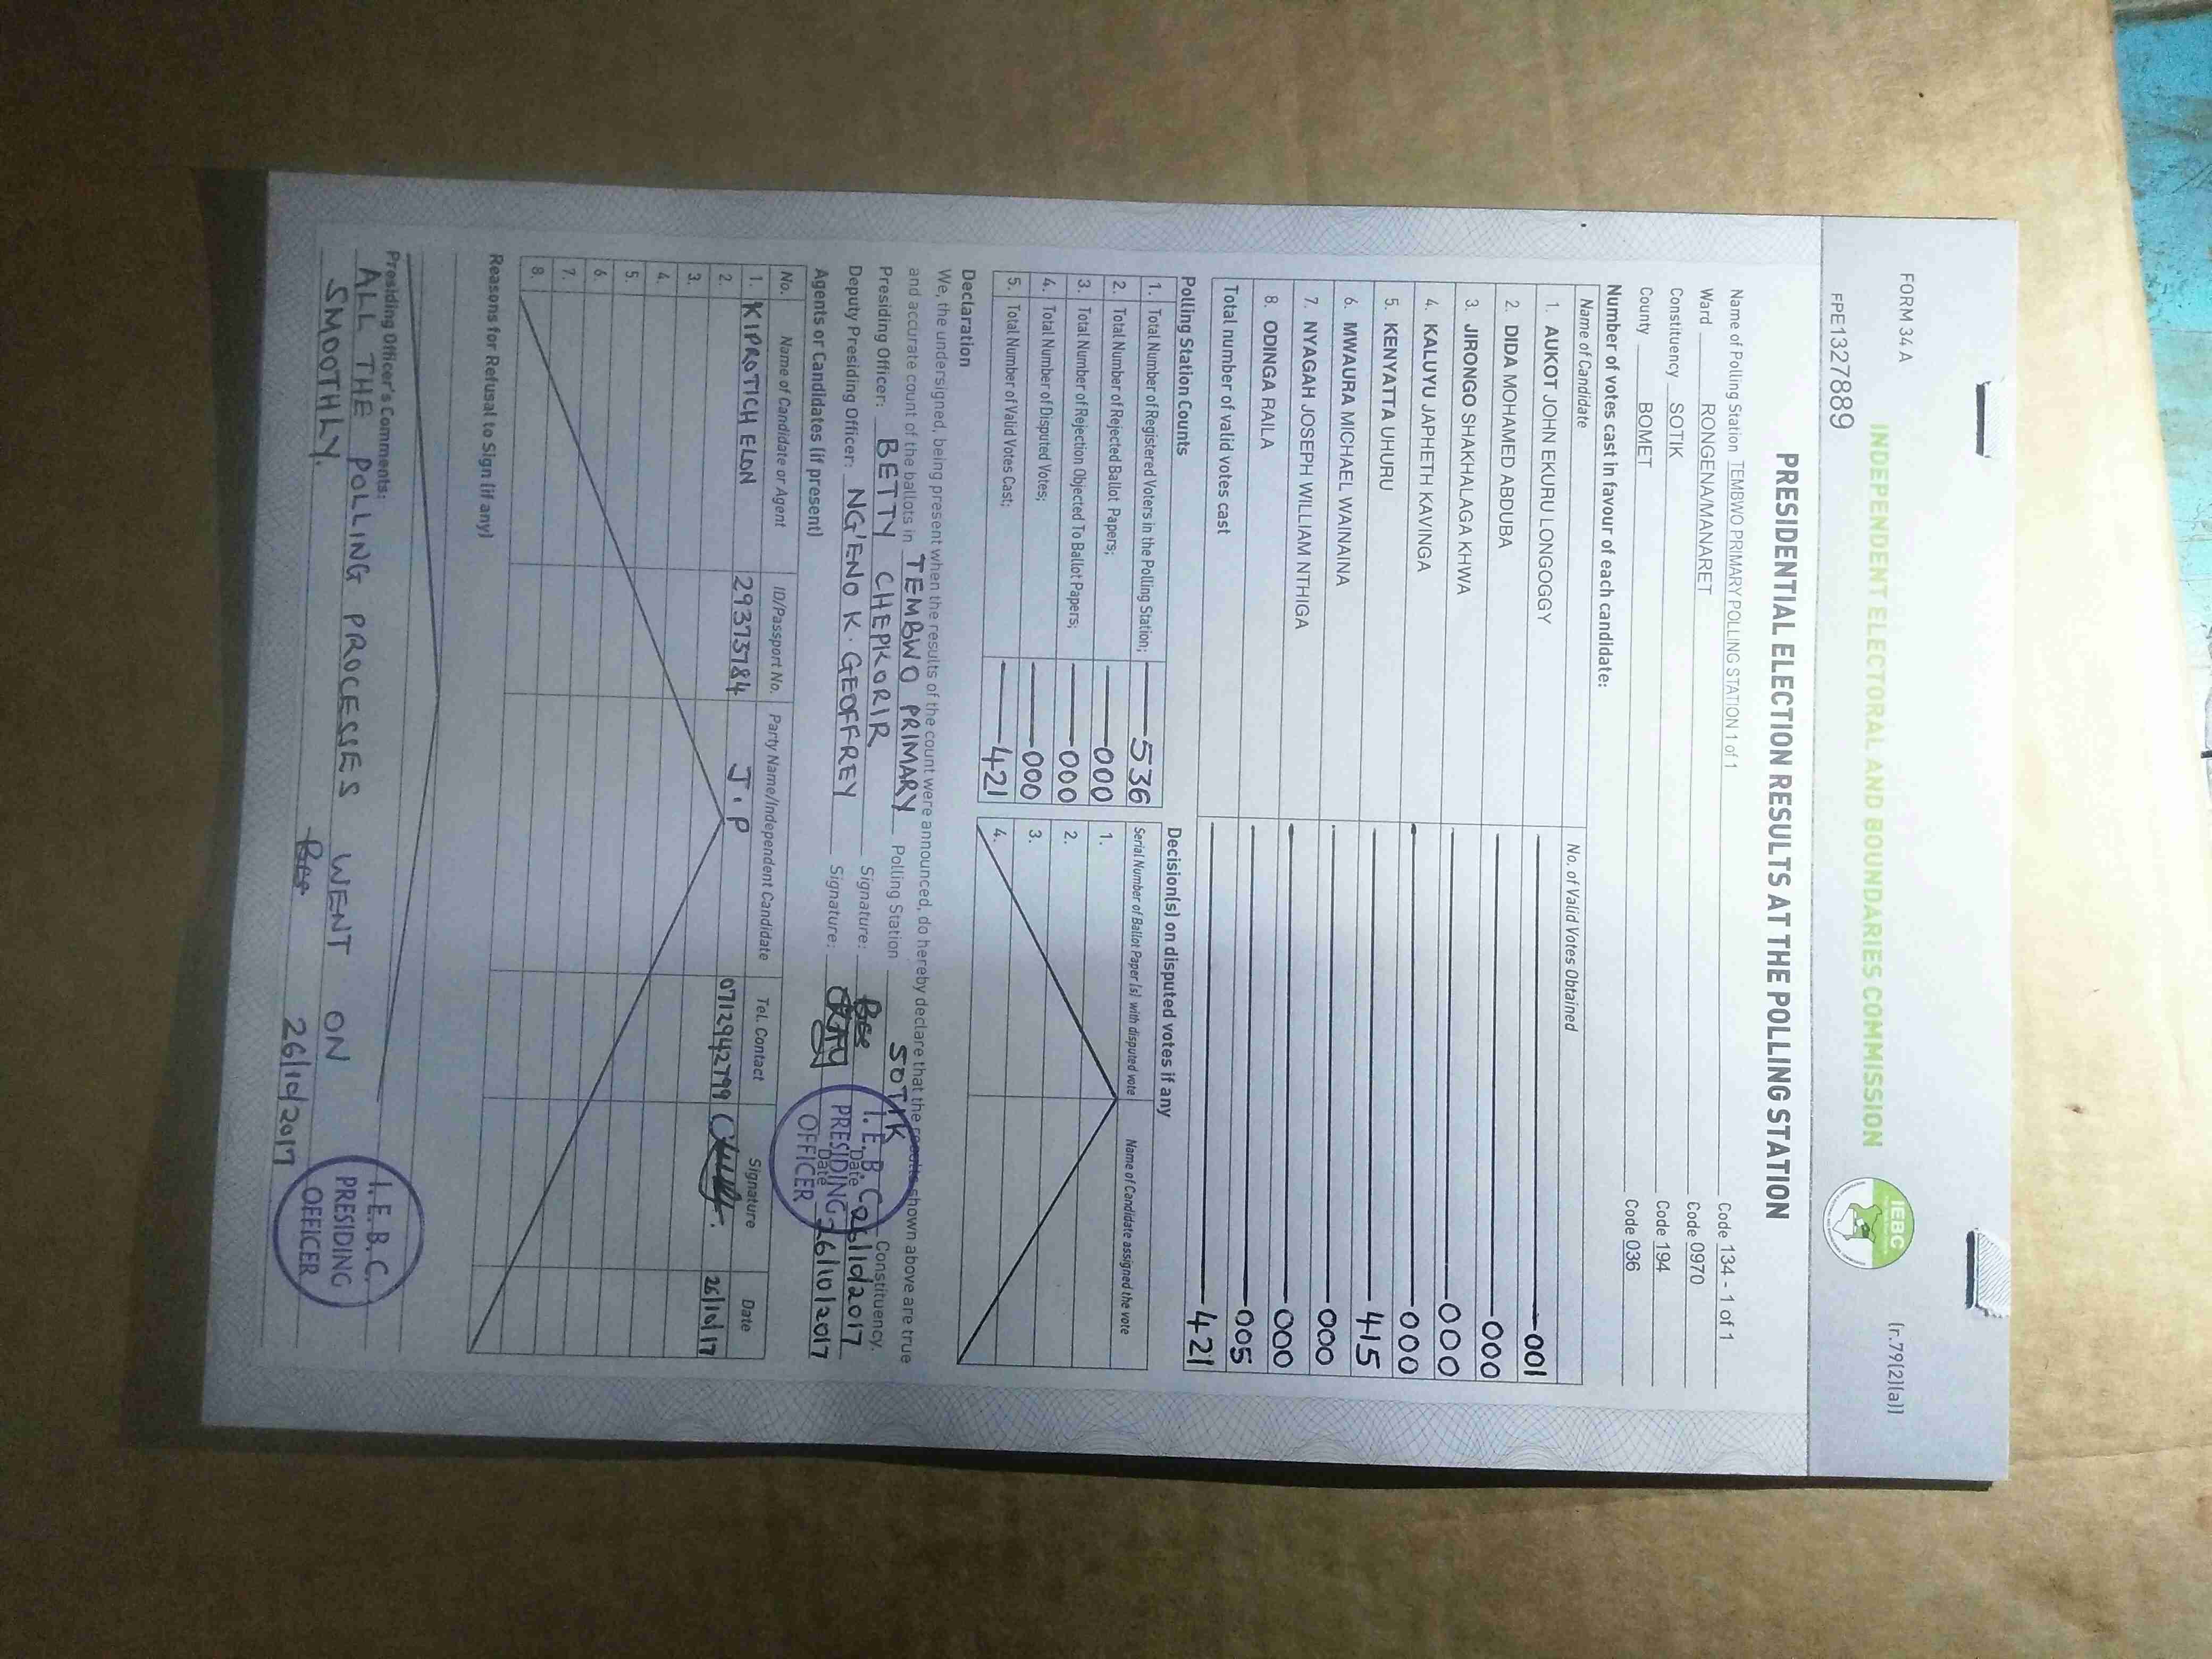 FORM 34 A
(r.79(2)(a))
INDEPENDENT ELECTORAL AND BOUNDARIES COMMISSION
IEBC
FPE1327889
PRESIDENTIAL ELECTION RESULTS AT THE POLLING STATION
Name of Polling Station TEMBWO PRIMARY POLLING STATION 1 of 1 Code 134 - 1 of 1
Ward RONGENA/MANARET Code 0970
Constituency SOTIK Code 194
County BOMET Code 036
Number of votes cast in favour of each candidate:
Name of Candidate No. of Valid Votes Obtained
1. AUKOT JOHN EKURU LONGOGGY 001
2. DIDA MOHAMED ABDUBA 000
3. JIRONGO SHAKHALAGA KHWA 000
4. KALUYU JAPHETH KAVINGA 000
5. KENYATTA UHURU 415
6. MWAURA MICHAEL WAINAINA 000
7. NYAGAH JOSEPH WILLIAM NTHIGA 000
8. ODINGA RAILA 005
Total number of valid votes cast 421
Polling Station Counts
1. Total Number of Registered Voters in the Polling Station; 536
2. Total Number of Rejected Ballot Papers; 000
3. Total Number of Rejection Objected To Ballot Papers; 000
4. Total Number of Disputed Votes; 000
5. Total Number of Valid Votes Cast; 421
Decision(s) on disputed votes if any
Serial Number of Ballot Paper (s) with disputed vote Name of Candidate assigned the vote
1.
2.
3.
4.
Declaration
We, the undersigned, being present when the results of the count were announced, do hereby declare that the results shown above are true
and accurate count of the ballots in TEMBWO PRIMARY Polling Station SOTIK Constituency.
Presiding Officer: BETTY CHEPKORIR Signature: Date 26/10/2017
Deputy Presiding Officer: NG'ENO K. GEOFFREY Signature: Date 26/10/2017
I.E.B.C.
PRESIDING
OFFICER
Agents or Candidates (if present)
No. Name of Candidate or Agent ID/Passport No. Party Name/Independent Candidate Tel. Contact Signature Date
1. KIPROTICH ELON 29373784 J.P 0712942799 26/10/17
2.
3.
4.
5.
6.
7.
8.
Reasons for Refusal to Sign (if any)
Presiding Officer's Comments:
ALL THE POLLING PROCESSES WENT ON
SMOOTHLY. 26/10/2017
I.E.B.C.
PRESIDING
OFFICER